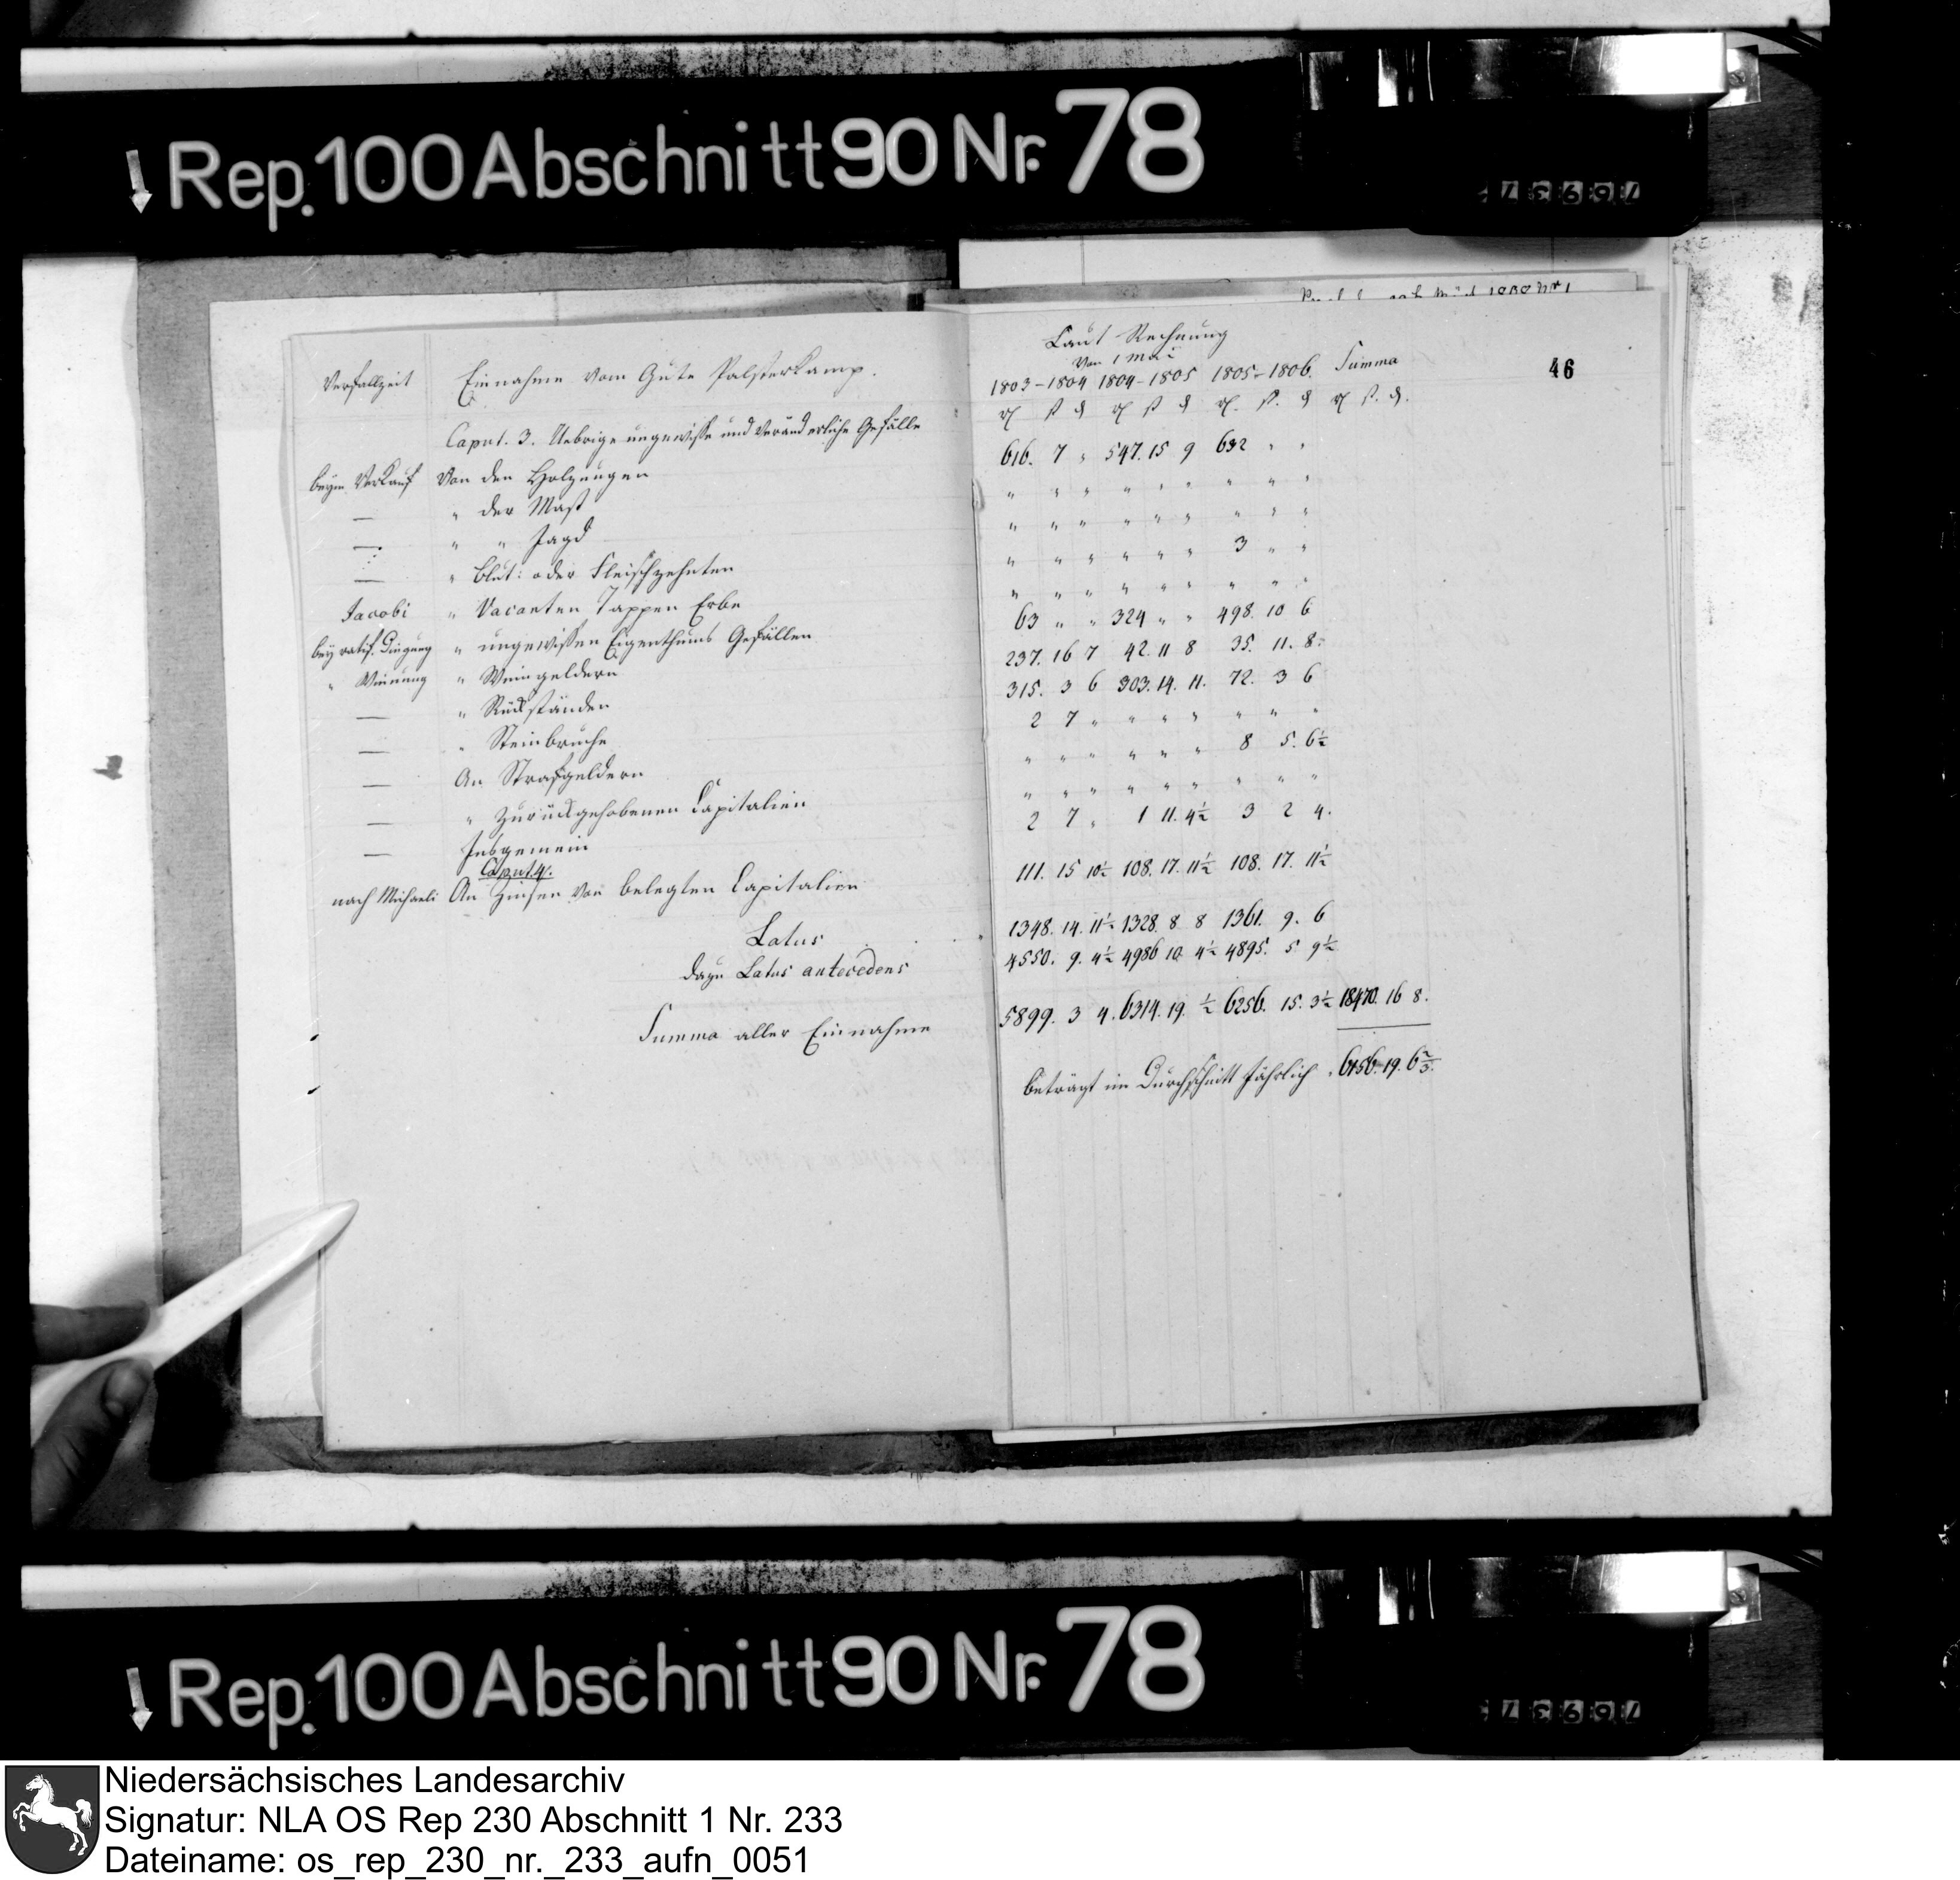 Rep. 100 Abschnitt 90 Nr. 78
Verfallzeit Einnahme vom Gute Palsterkamp.
Caput. 3. Uebrige ungewisse und veränderliche Gefälle
beym Verkauf Von den Holzungen
— " der Mast
— " " Jagd
— " Blut: oder Fleischzehnten
Jacobi " Vacanten Tappen Erbe
bey ratif. Dingung " ungewissen Eigenthums Gefällen
" Winnung " Weingeldern
— " Rückständen
— " Steinbruche
— An Strafgeldern
— " Zurückgehobenen Capitalien
— Insgemein
Caput 4.
nach Michaeli An Zinsen von belegten Capitalien
Latus
dazu Latus antecedens
Summa aller Einnahme
46
Laut Rechnung
Von 1 Mai
1803-1804 1804-1805 1805-1806. Summa
616. 7 " 547. 15 9 632 " "
" " " " " " " " "
" " " " " " " " "
" " " " " " 3 " "
" " " " " " " " "
63 " " 324 " " 498. 10 6
237. 16 7 42. 11 8 35. 11. 8.
315. 3 6 303. 14. 11. 72. 3 6
2 7 " " " " " " "
" " " " " " 8 5. 6½
" " " " " " " " "
2 7 " 1 11. 4½ 3 2 4.
111. 15 10½ 108. 17. 11½ 108. 17. 11½
1348. 14. 11½ 1328. 8 8 1361. 9. 6
4550. 9. 4½ 4986 10 4½ 4895. 5 9½
5899. 3 4. 6314. 19. ½ 6256. 15. 3½ 18470. 16 8.
beträgt im Durchschnitt jährlich 6156. 19. 6⅔.
Rep. 100 Abschnitt 90 Nr. 78
Niedersächsisches Landesarchiv
Signatur: NLA OS Rep 230 Abschnitt 1 Nr. 233
Dateiname: os_rep_230_nr._233_aufn_0051